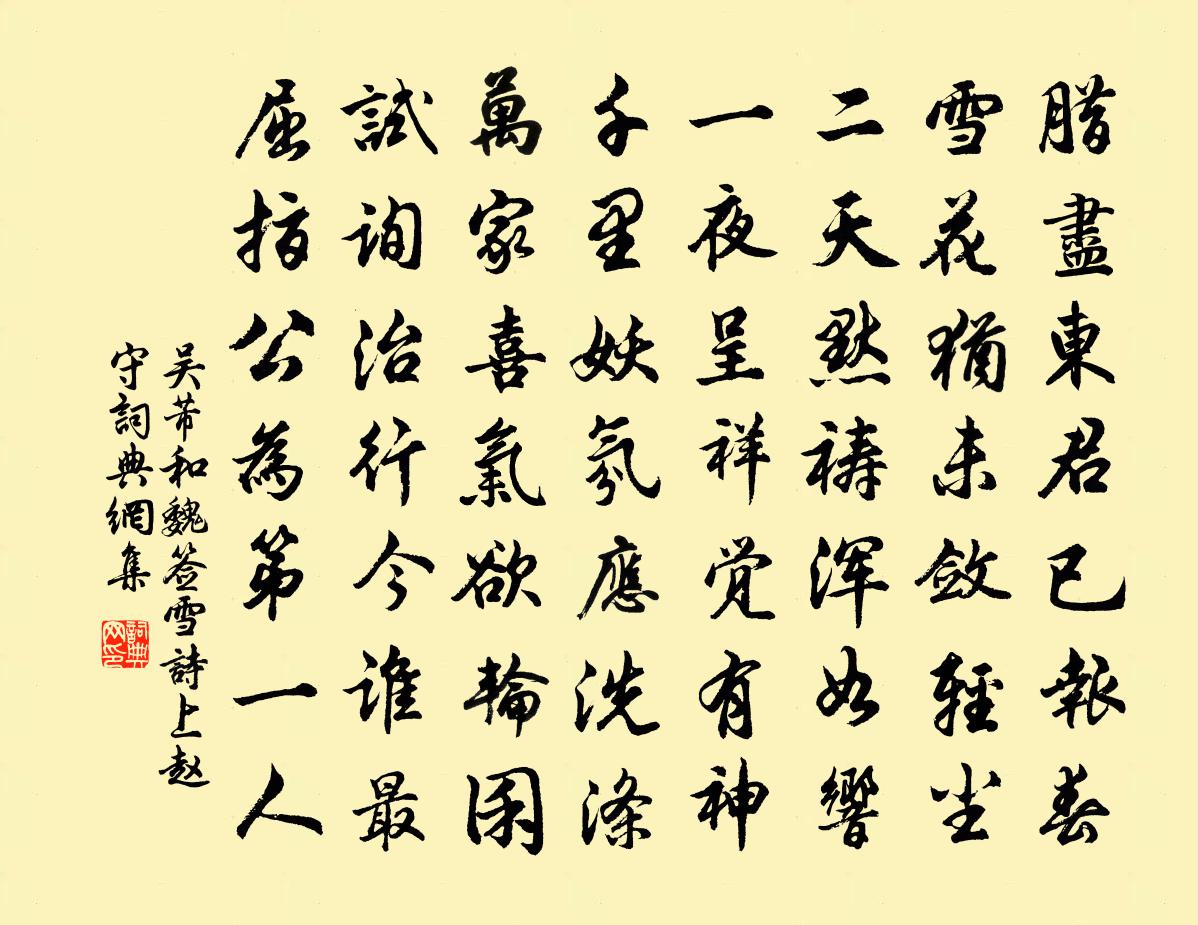 腊盡東君已報春
雪花猶未斂輕尘
二天默禱浑如響
一夜呈祥觉有神
千里妖氛應洗滌
萬家喜氣欲輪囷
試询治行今谁最
屈指公為第一人
吴芾和魏签雪詩上赵
守詞典網集
詞典网印